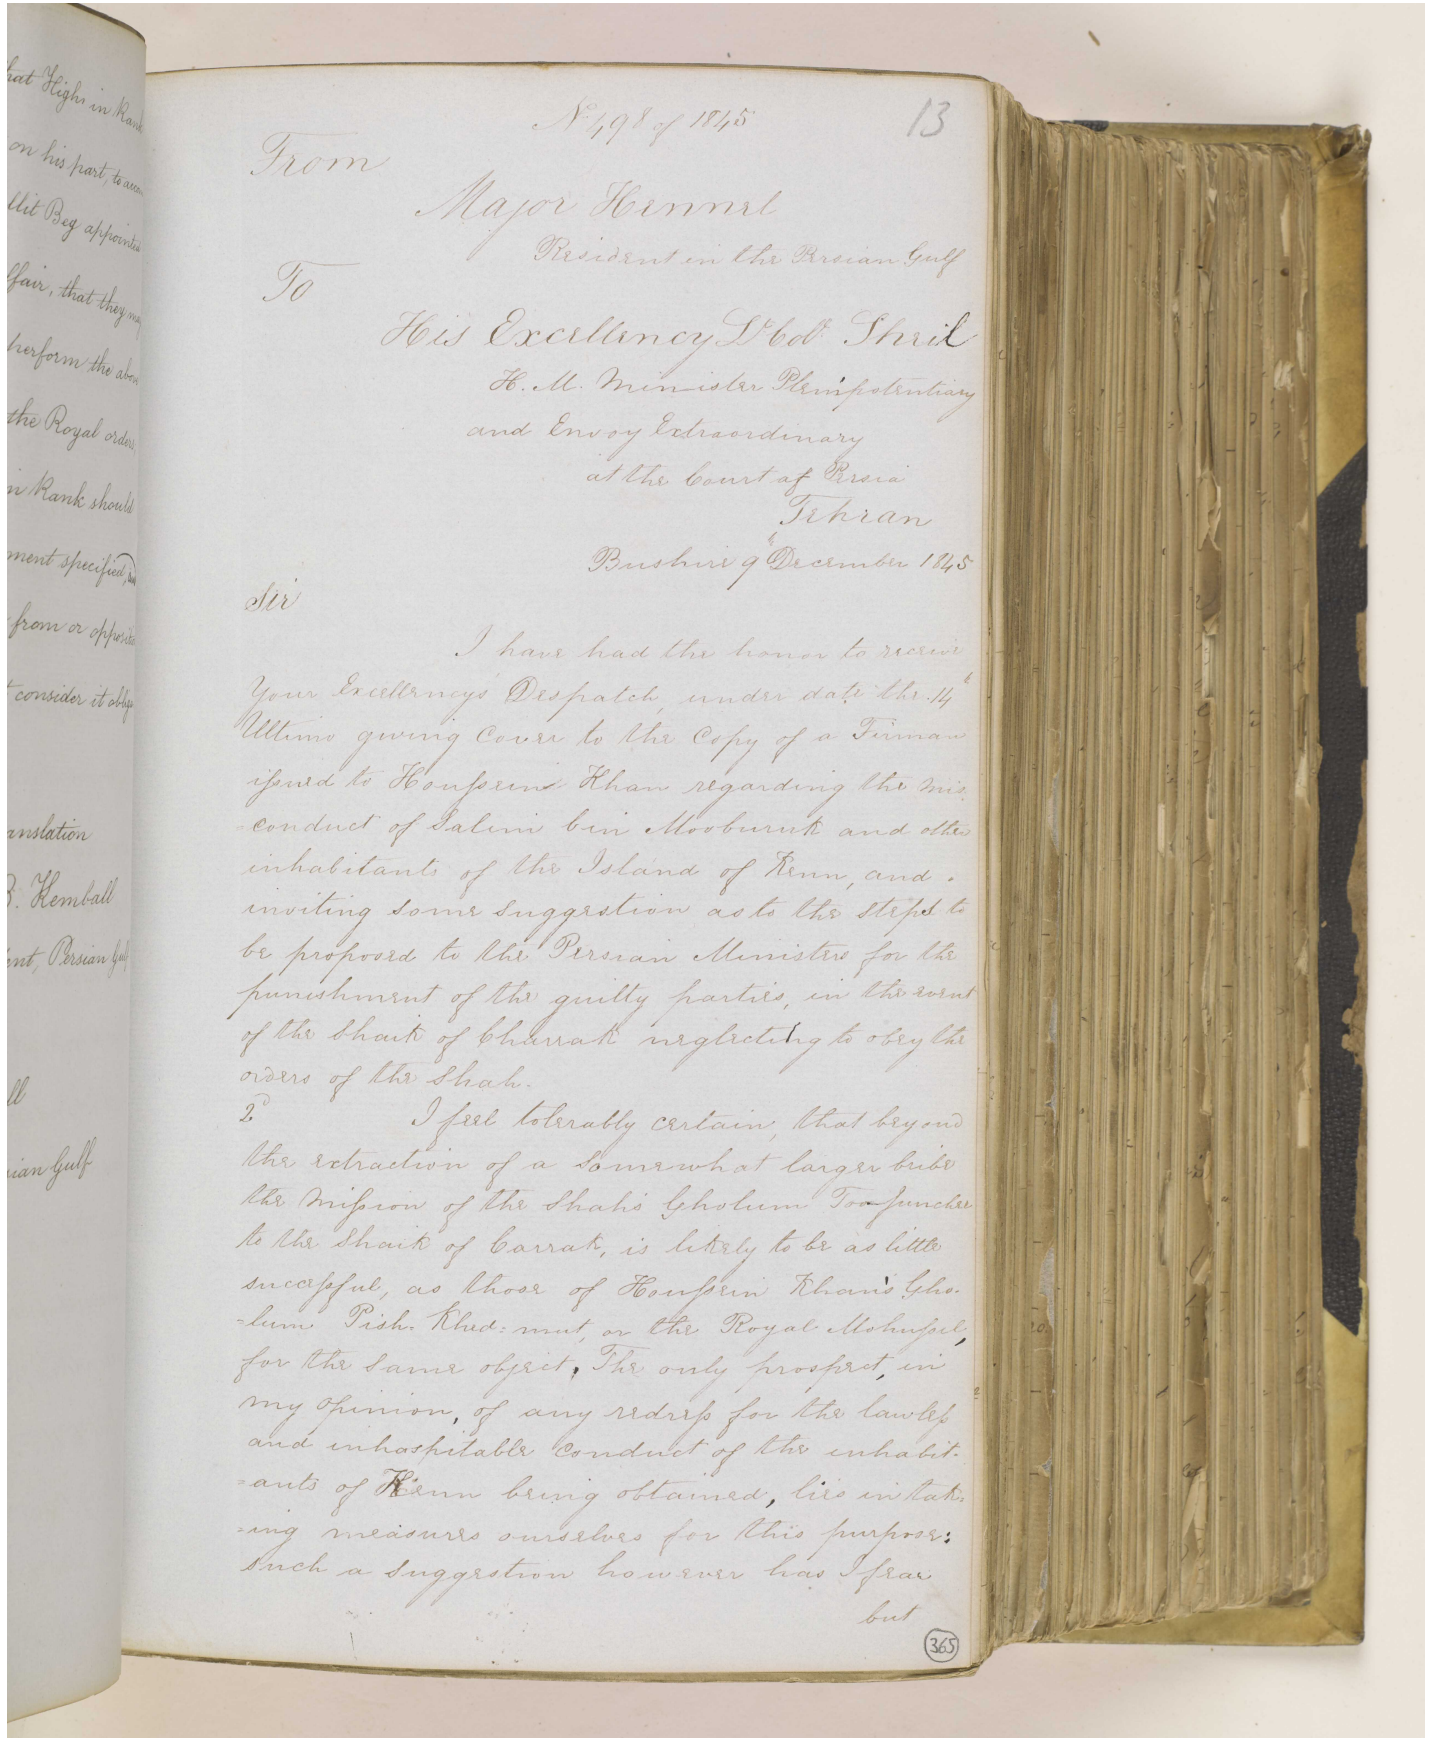 hat High in Rank
on his part, to accom
llit Beg appointed
ffair, that they may
perform the above
the Royal orders
in Rank should
ment specified, and
from or opposite
t consider it oblig
anslation
B. Kemball
ent, Persian Gulf
ll
sian Gulf
No 498 of 1845
13
From
Major Hennel
Resident in the Persian Gulf
To
His Excellency Lt Col Sheil
H. M. Minister Plenipotentiary
and Envoy Extraordinary
at the Court of Persia
Tehran
Bushire 9th December 1845
Sir
I have had the honor to receive
Your Excellency's Despatch, under date the 14th
Ultimo giving Cover to the Copy of a Firman
issued to Houssein Khan regarding the mis
=conduct of Salim bin Mooburuk and other
inhabitants of the Island of Kenn, and
inviting some suggestion as to the steps to
be proposed to the Persian Ministers for the
punishment of the guilty parties, in the event
of the Shaik of Charrak neglecting to obey the
orders of the Shah.
2d I feel tolerably certain, that beyond
the extraction of a somewhat larger bribe
the Mission of the Shah's Gholum Toofunchee
to the Shaik of Carrak, is likely to be as little
successful, as those of Houssein Khan's Gho-
=lum Pish-Khed=mut, or the Royal Mohussil,
for the same object. The only prospect, in
my opinion, of any redress for the lawless
and inhospitable conduct of the inhabit-
=ants of Kenn being obtained, lies in tak=
=ing measures ourselves for this purpose:
such a suggestion however has I fear
but
365